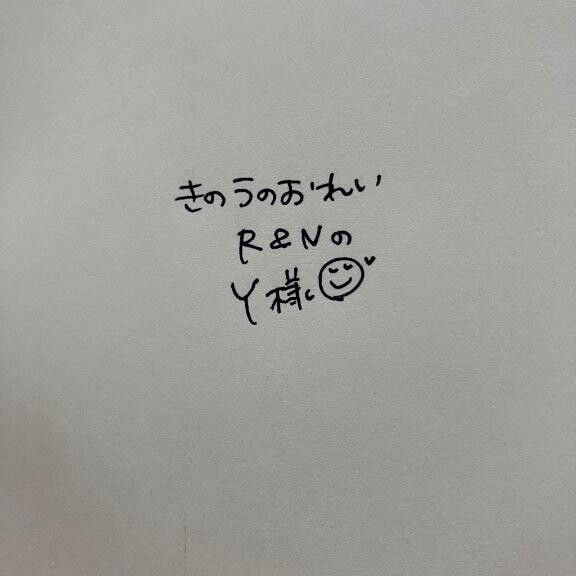 きのうのおれい
R&Nの
Y様